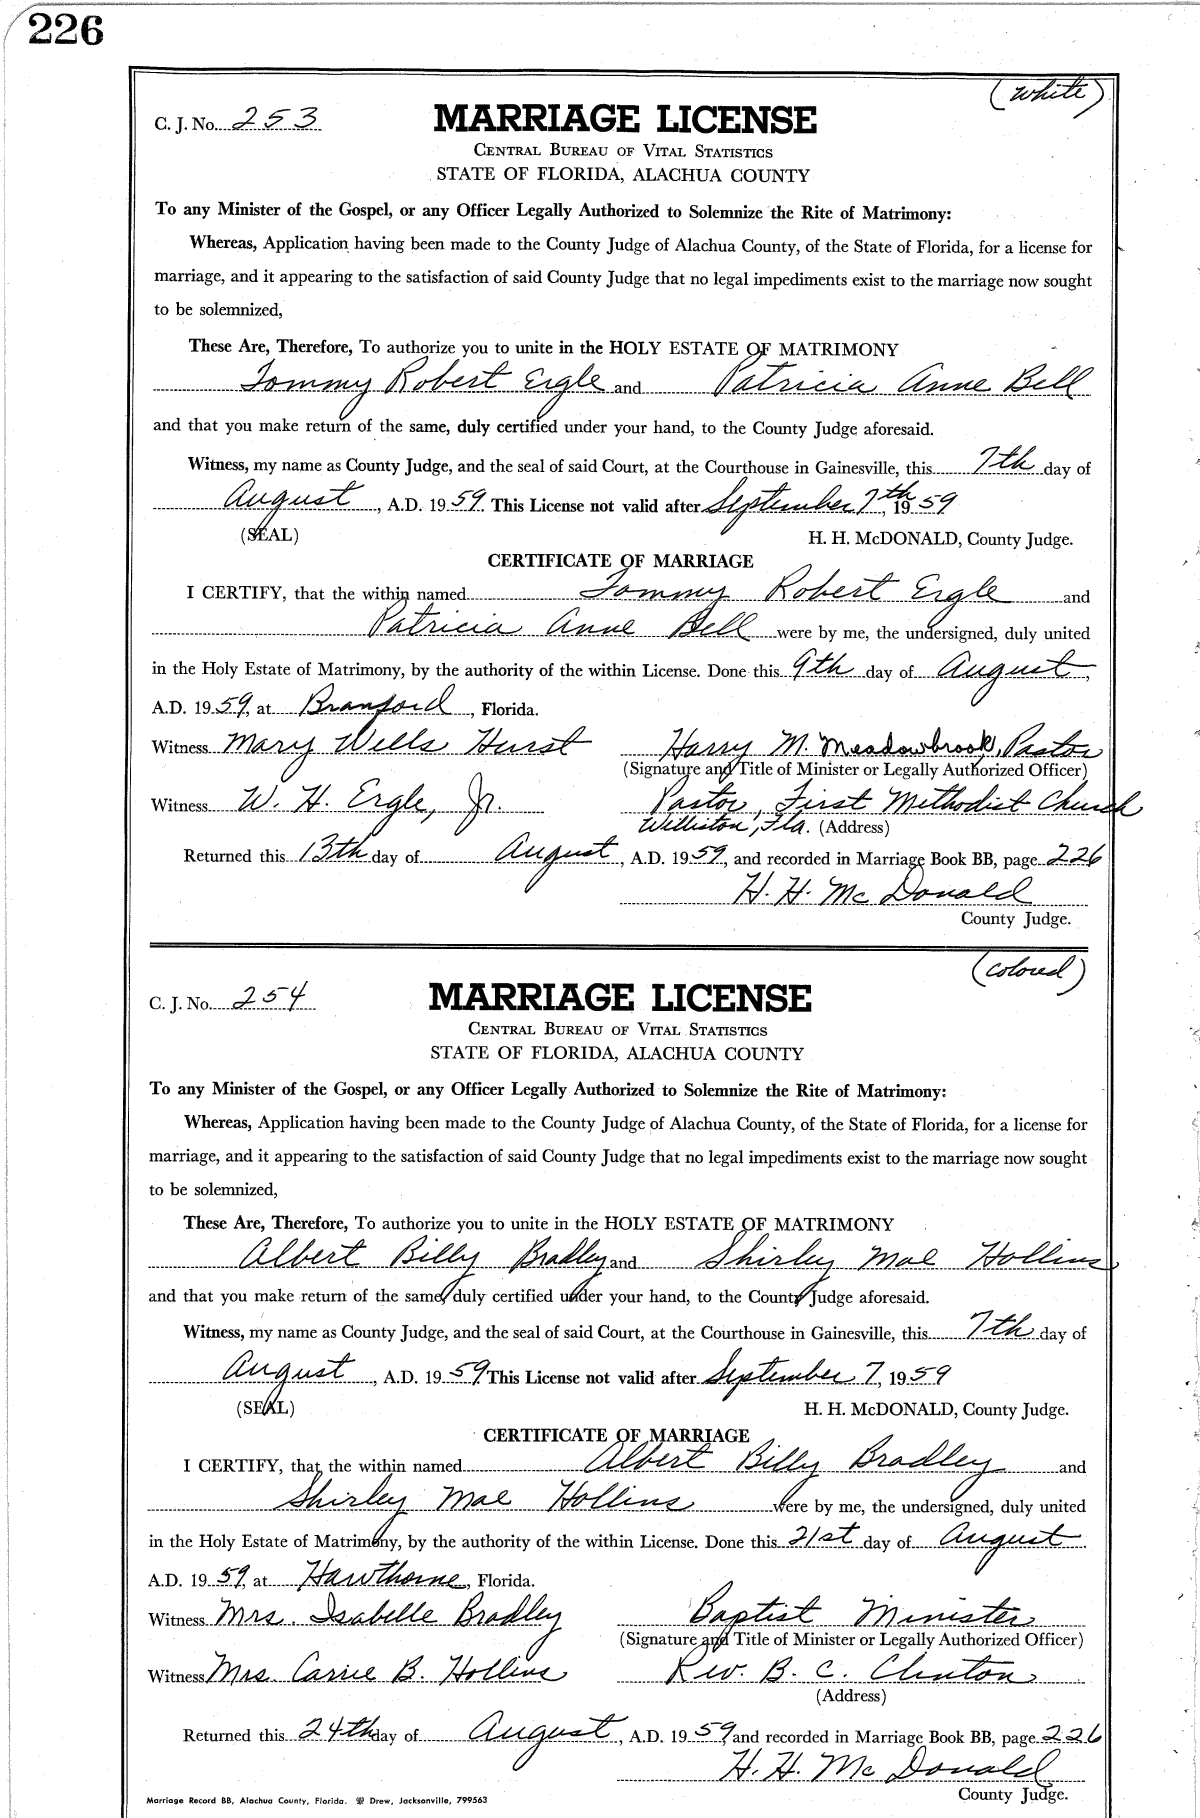 226
(white)
C. J. No. 253 MARRIAGE LICENSE
CENTRAL BUREAU OF VITAL STATISTICS
STATE OF FLORIDA, ALACHUA COUNTY
To any Minister of the Gospel, or any Officer Legally Authorized to Solemnize the Rite of Matrimony:
Whereas, Application having been made to the County Judge of Alachua County, of the State of Florida, for a license for
marriage, and it appearing to the satisfaction of said County Judge that no legal impediments exist to the marriage now sought
to be solemnized,
These Are, Therefore, To authorize you to unite in the HOLY ESTATE OF MATRIMONY
Tommy Robert Ergle and Patricia Anne Bell
and that you make return of the same, duly certified under your hand, to the County Judge aforesaid.
Witness, my name as County Judge, and the seal of said Court, at the Courthouse in Gainesville, this 7th day of
August, A.D. 1959. This License not valid after September 7th, 1959
(SEAL) H. H. McDONALD, County Judge.
CERTIFICATE OF MARRIAGE
I CERTIFY, that the within named Tommy Robert Ergle and
Patricia Anne Bell were by me, the undersigned, duly united
in the Holy Estate of Matrimony, by the authority of the within License. Done this 9th day of August,
A.D. 1959, at Branford, Florida.
Witness Mary Wells Hurst Harry M. Meadowbrook, Pastor
(Signature and Title of Minister or Legally Authorized Officer)
Witness W. H. Ergle, Jr. Pastor, First Methodist Church
Williston, Fla. (Address)
Returned this 13th day of August, A.D. 1959, and recorded in Marriage Book BB, page 226
H. H. McDonald
County Judge.
(colored)
C. J. No. 254 MARRIAGE LICENSE
CENTRAL BUREAU OF VITAL STATISTICS
STATE OF FLORIDA, ALACHUA COUNTY
To any Minister of the Gospel, or any Officer Legally Authorized to Solemnize the Rite of Matrimony:
Whereas, Application having been made to the County Judge of Alachua County, of the State of Florida, for a license for
marriage, and it appearing to the satisfaction of said County Judge that no legal impediments exist to the marriage now sought
to be solemnized,
These Are, Therefore, To authorize you to unite in the HOLY ESTATE OF MATRIMONY
Albert Billy Bradley and Shirley Mae Hollins
and that you make return of the same, duly certified under your hand, to the County Judge aforesaid.
Witness, my name as County Judge, and the seal of said Court, at the Courthouse in Gainesville, this 7th day of
August, A.D. 1959 This License not valid after September 7, 1959
(SEAL) H. H. McDONALD, County Judge.
CERTIFICATE OF MARRIAGE
I CERTIFY, that the within named Albert Billy Bradley and
Shirley Mae Hollins were by me, the undersigned, duly united
in the Holy Estate of Matrimony, by the authority of the within License. Done this 21st day of August
A.D. 1959, at Hawthorne, Florida.
Witness Mrs. Isabelle Bradley Baptist Minister
(Signature and Title of Minister or Legally Authorized Officer)
Witness Mrs. Carrie B. Hollins Rev. B. C. Clinton
(Address)
Returned this 24th day of August, A.D. 1959, and recorded in Marriage Book BB, page 226
H. H. McDonald
County Judge.
Marriage Record BB, Alachua County, Florida. Drew, Jacksonville, 799563